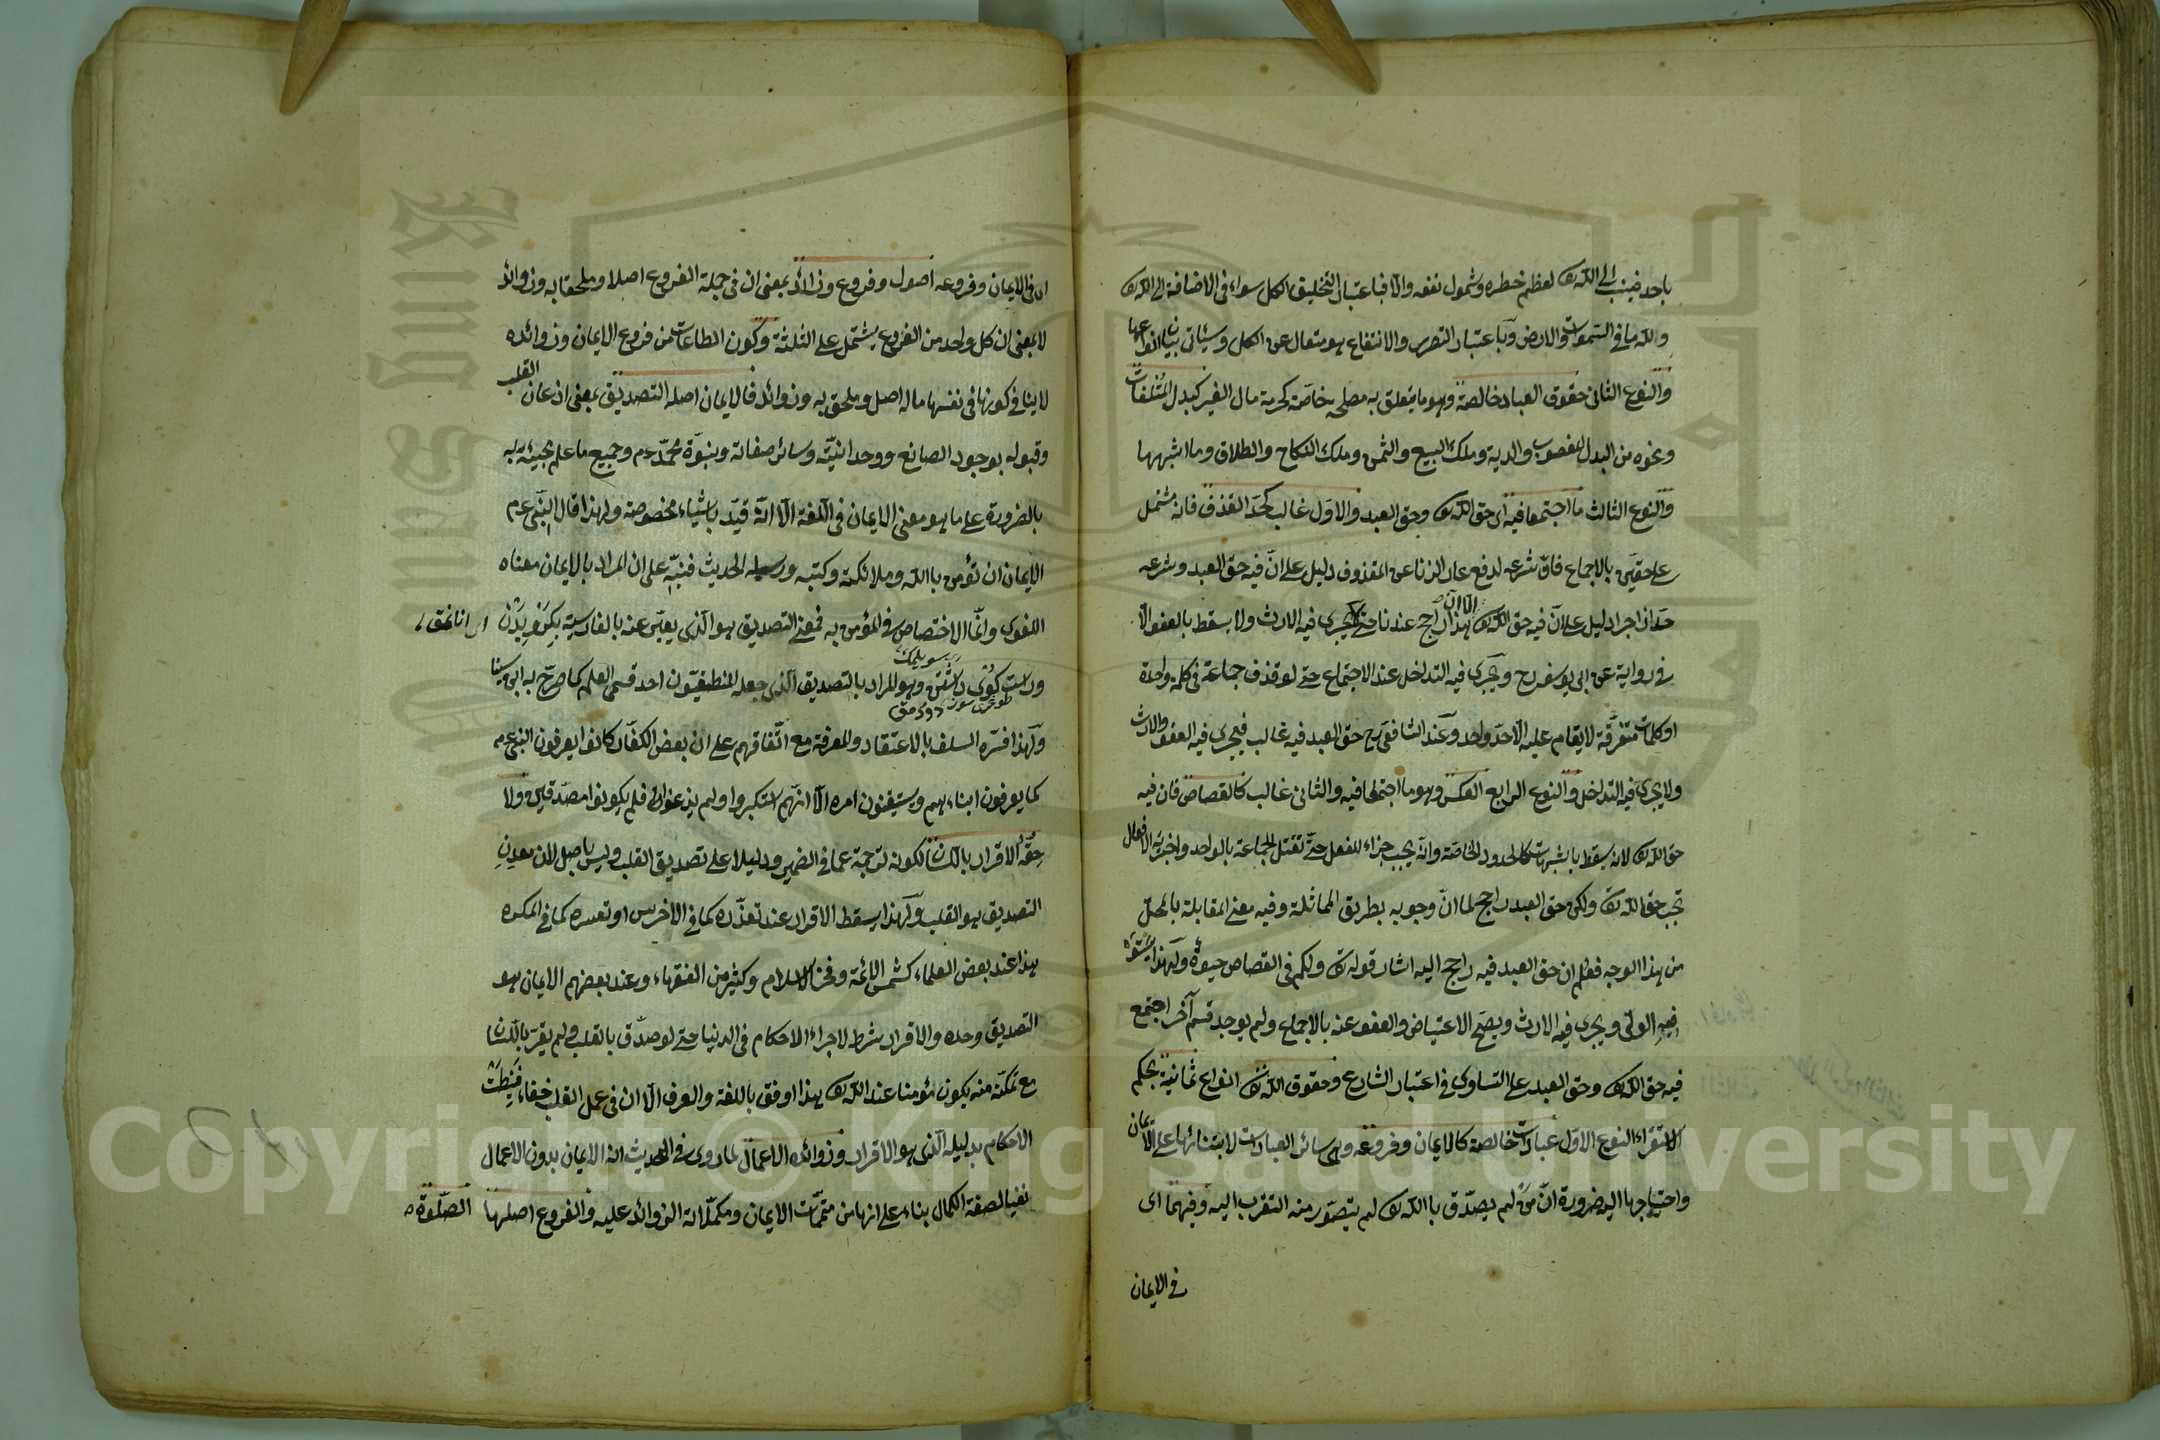 باحد فينسب الى الله تع لعظم خطره وشمول نفعه والا فباعتبار التخليق الكل سواء في الاضافة الى الله تع
ولله ما في السموات والارض وباعتبار التضرر والانتفاع هو متعال عن الكل وسيأتي بيان انواعها
والنوع الثاني حقوق العباد خالصة وهو ما يتعلق به مصلحة خاصة كحرمة مال الغير كبدل المتلفات
ونحوه من البدل المغصوب والدية وملك المبيع والثمن وملك النكاح والطلاق وما اشبهها
والنوع الثالث ما اجتمعا فيه اي حق الله تع وحق العبد والاول غالب كحد القذف فانه مشتمل
على حقين بالاجماع فان شرعه لدفع عار الزنا عن المقذوف دليل على ان فيه حق العبد وشرعه
حدا زاجرا دليل على ان فيه حق الله تع الا ان هذا راجح عندنا حتى لا يجري فيه الارث ولا يسقط بالعفو الا
في رواية عن ابي يوسف رح ويجري فيه التداخل عند الاجتماع حتى لو قذف جماعة في كلمة واحدة
او كلمات متفرقة لا يقام عليه الا حد واحد وعند الشافعي رح حق العبد فيه غالب فيجري فيه العفو والارث
ولا يجري فيه التداخل والنوع الرابع العكس وهو ما اجتمعا فيه والثاني غالب كالقصاص فان فيه
حق الله تع لانه يسقط بالشبهات كالحدود الخاصة وانه يجب جزاء للفعل حتى تقتل الجماعة بالواحد واجزية الافعال
تجب حق الله تع ولكن حق العبد راجح لما ان وجوبه بطريق المماثلة وفيه معنى المقابلة بالمحل
من هذا الوجه فعلم ان حق العبد فيه راجح اليه اشار قوله تع ولكم في القصاص حيوة ولهذا
فيه الولي ويجري فيه الارث ويصح الاعتياض والعفو عنه بالاجماع ولم يوجد قسم آخر اجتمع
فيه حق الله تع وحق العبد على التساوي في اعتبار الشارع وحقوق الله تع انواع ثمانية بحكم
الاستقراء النوع الاول عبادات خالصة كالايمان وفروعه وهي سائر العبادات لابتنائها على الايمان
واحتياجها اليه ضرورة ان من لم يصدق بالله تع لم يتصور منه التقرب اليه وفيهما اي
في الايمان
اي في الايمان وفروعه اصول وفروع وزوائد بمعنى ان في جملة الفروع اصلا وملحقا به وزوائد
لا بمعنى ان كل واحد من الفروع يشتمل على الثلثة وكون الطاعات من فروع الايمان وزوائده
لا ينافي كونها في نفسها ماله اصل وملحق به وزوائد فالايمان اصله التصديق بمعنى اذعان القلب
وقبوله بوجود الصانع ووحدانيته وسائر صفاته وبنبوة محمد عم وجميع ما علم مجيئه به
بالضرورة على ما هو معنى الايمان في اللغة الا انه قيد باشياء مخصوصة ولهذا قال النبي عم
الايمان ان تؤمن بالله وملائكته وكتبه ورسله الحديث فنبه على ان المراد بالايمان معناه
اللغوي وانما الاختصاص في المؤمن به فمعنى التصديق هو الذي يعبر عنه بالفارسية بكرويدن اينانمق
سويلمك
وراست كوي داشتن وهو المراد بالتصديق الذي جعله المنطقيون احد قسمي العلم كما صرح به ابن سينا
طوغري سوز
ولهذا فسره السلف بالاعتقاد والمعرفة مع اتفاقهم على ان بعض الكفار كانوا يعرفون النبي عم
كما يعرفون ابناءهم ويستيقنون امره الا انهم استكبروا ولم يذعنوا له فلم يكونوا مصدقين ولا
حقه الاقرار باللسان لكونه ترجمة عما في الضمير ودليلا على تصديق القلب وليس باصل لان معدن
التصديق هو القلب ولهذا يسقط الاقرار عند تعذره كما في الاخرس او تعسره كما في المكره
هذا عند بعض العلماء كشمس الائمة وفخر الاسلام وكثير من الفقهاء وعند بعضهم الايمان هو
التصديق وحده والاقرار شرط لاجراء الاحكام في الدنيا حتى لو صدق بالقلب ولم يقر باللسان
مع تمكنه منه يكون مؤمنا عند الله تع هذا اوفق باللغة والعرف الا ان في عمل القلب خفاء فنيطت
الاحكام بدليله الذي هو الاقرار وزوائده الاعمال لما روي في الحديث انه لا ايمان بدون الاعمال
نفيا لصفة الكمال بناء على انها من متممات الايمان ومكملاته الزوائد عليه والفروع اصلها الصلوة
Copyright © King Saud University
King Saud University